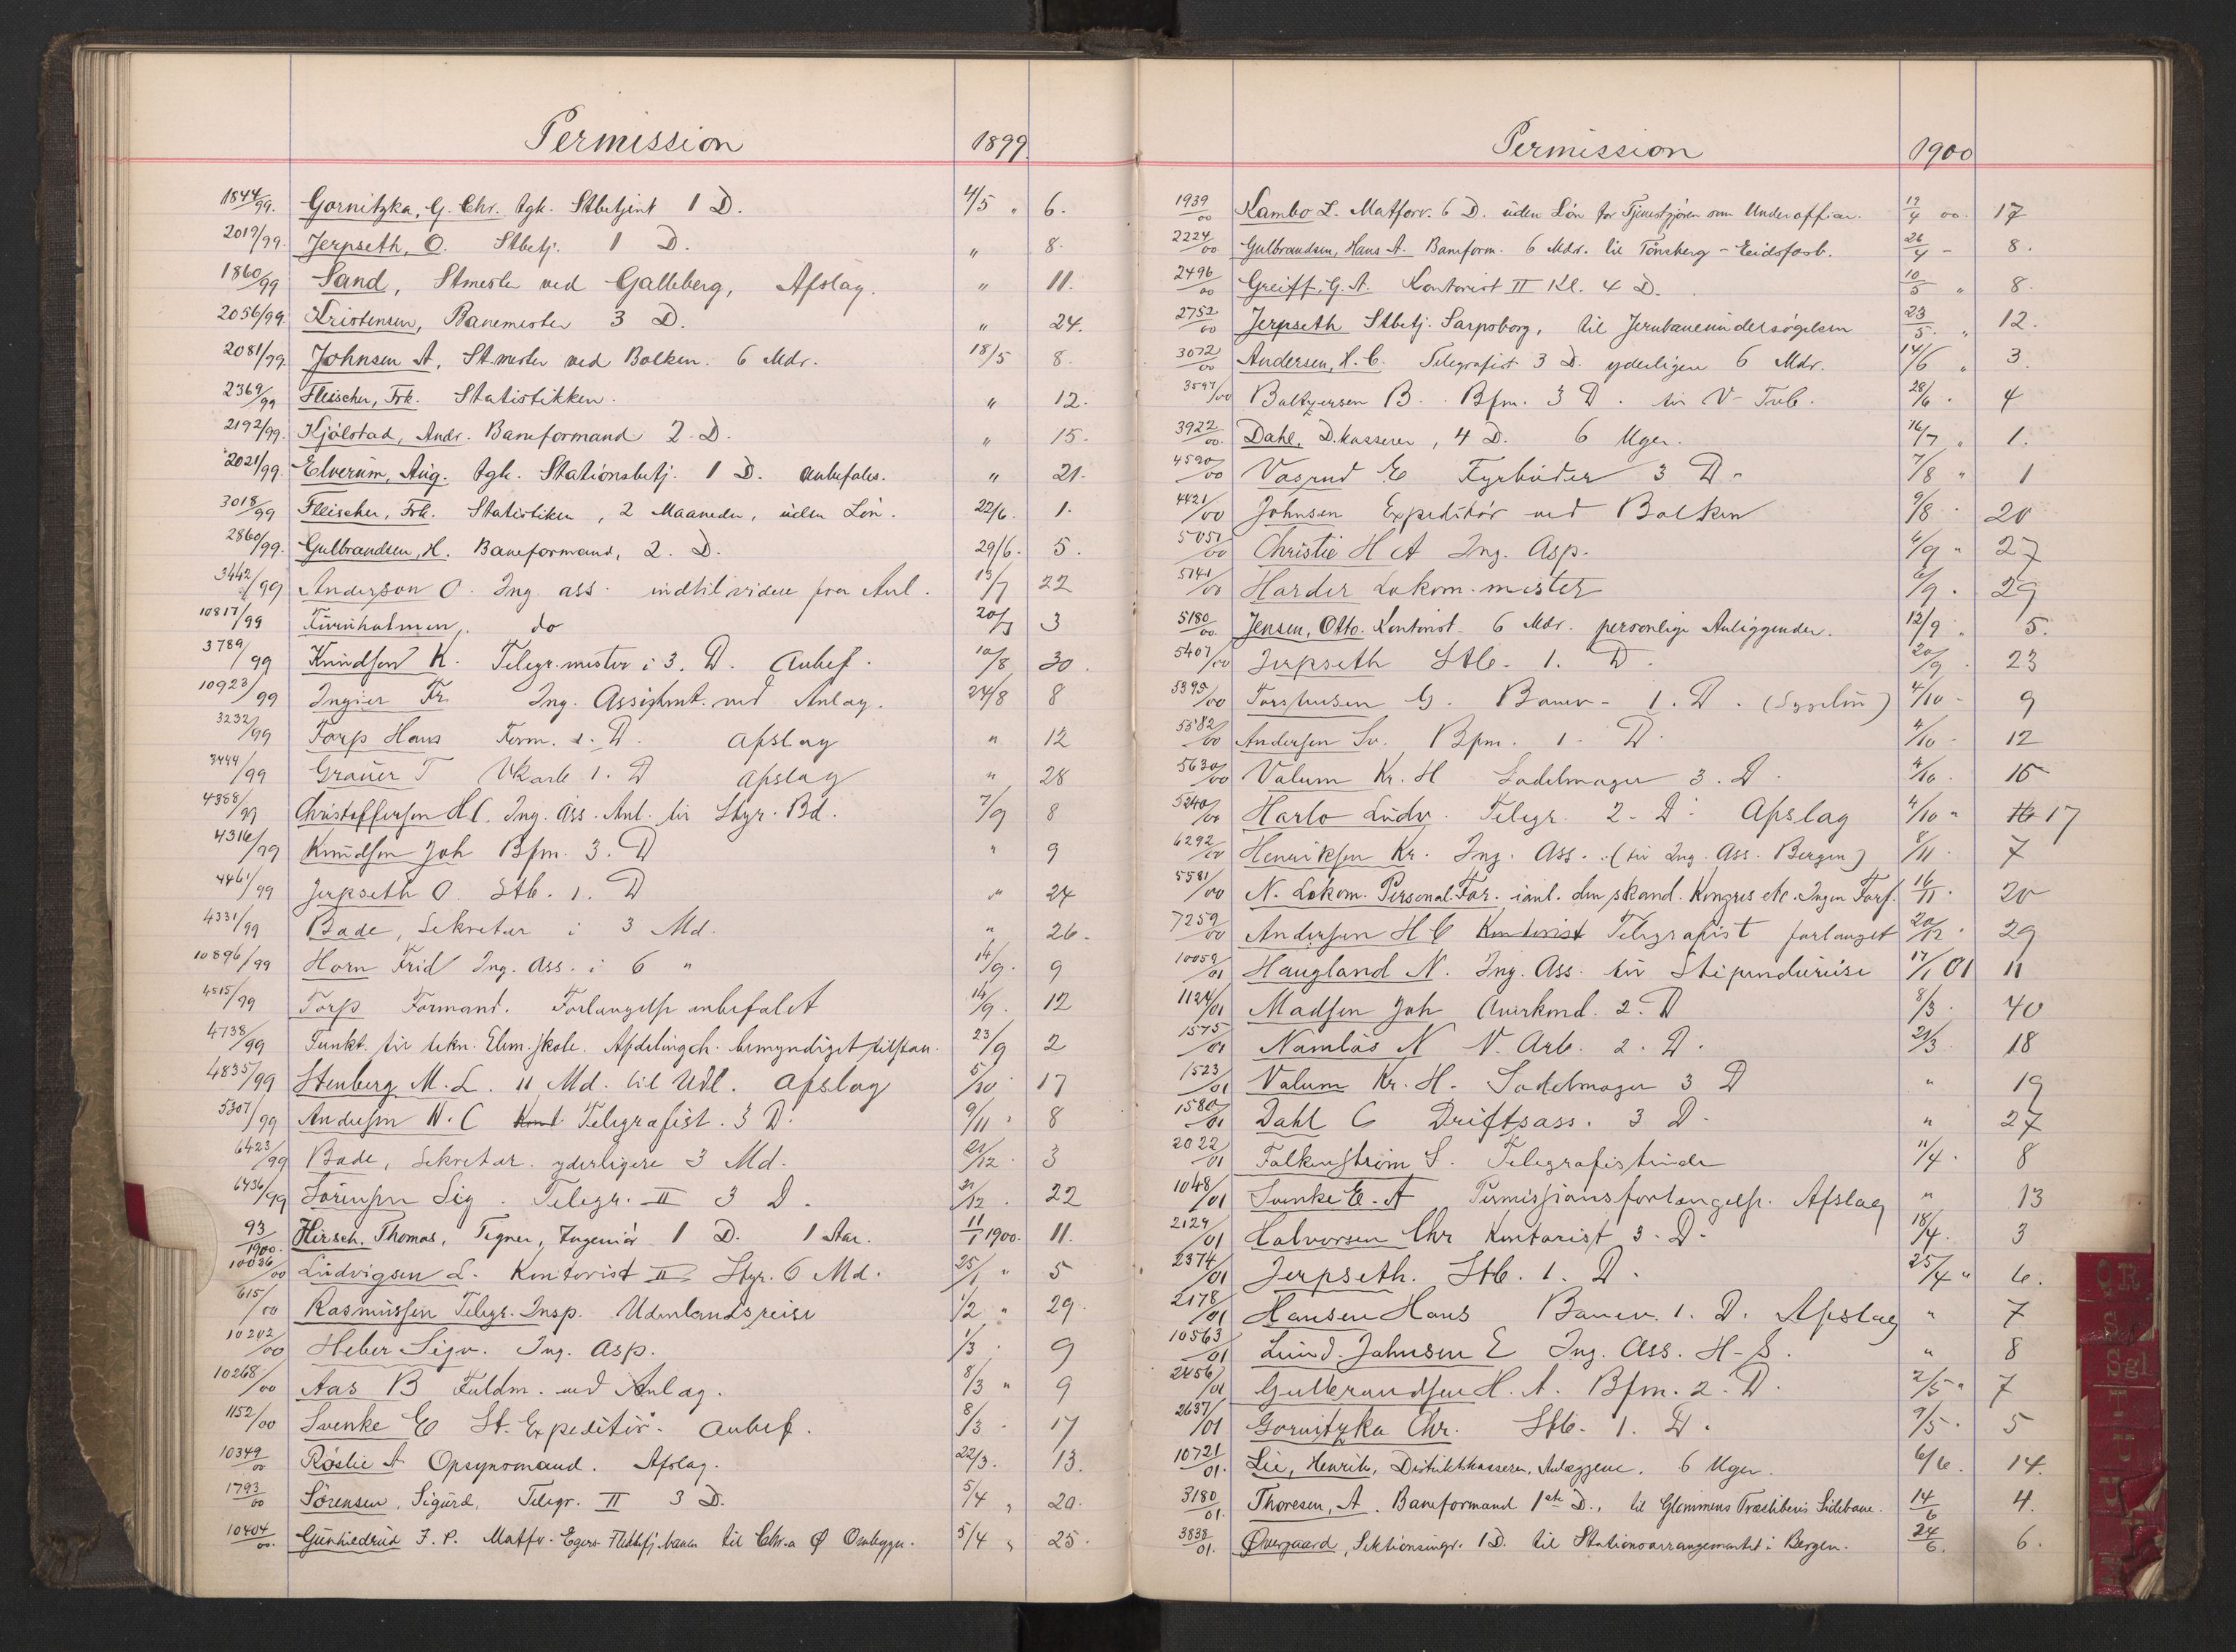 Permission 1899
1844/99. Gornitzka, G. Chr. tgk. Stbetjent 1 D. 4/5 " 6.
2019/99. Jerpseth, O. Stbetj. 1 D. " 8.
1860/99 Sand, Stmester ved Galleberg, Afslag. " 11.
2056/99. Kristensen, Banemester 3 D. " 24.
2081/99. Johnsen A, St.mester ved Bolken. 6 Mdr. 18/5 8.
2369/99 Fleischer, Frk. Statistikken. " 12.
2192/99. Kjölstad, Andr. Baneformand 2. D. " 15.
2021/99. Elverum, Aug. tgk. Stationsbetj. 1 D. anbefales. " 21.
3018/99 Fleischer, Frk. Statistiken, 2 Maaneder, uden Lön. 22/6. 1.
2860/99. Gulbrandsen, H. Baneformand, 2. D. 29/6. 5.
3442/99 Anderson O. Ing. ass. indtil videre fra Anl. 13/7 22
10817/99 Furuholmen, do 20/7 3
3789/99 Knudsen K. Telegr.mester i 3. D. Anbef. 10/8 30.
10923/99 Ingier Fr. Ing. Assistent ved Anlag. 24/8 8
3232/99 Torp Hans Form. 2. D. afslag " 12
3444/99 Graüer T Vkarl 1. D afslag " 28
4388/99 Christoffersen H C. Ing. Ass. Anl. til Styr. Bd. 7/9 8
4316/99 Knudsen Joh Bfm. 3. D " 9
4461/99 Jerpseth O. Stb. 1. D " 24
4331/99 Bade, Sekretær i 3 Md. " 26.
10896/99 Horn Frid Ing. Ass. i 6 " 14/9. 9
4515/99 Torp Formand. Forlængelse anbefalet 14/9. 12
4738/99 Funkt. tir tekn. Elem. skole. Afdelingsch. bemyndiget tilstaa. 23/9 2
4835/99 Stenberg M. L. 11 Md. til Udl. afslag 5/10 17
5307/99 Andersen H. C Kont Telegrafist. 3 D. 9/11 " 8
6423/99 Bade, Sekretær. yderligere 3 Md. 21/12. 3
6436/99 Sörensen Sig. Telegr. II 3 D. 21/12. 22
93/1900. Hirsch, Thomas, Tegner, Ingeniör 1 D. 1 Aar. 11/1 1900. 11.
10036/00 Ludvigsen L. Kontorist II Styr. 6 Md. 25/1 " 5
615/00 Rasmussen Telegr. Insp. Udenlandsreise 1/2 " 29.
10202/00 Heber Sigv. Ing. asp. 1/3. 9
10268/00 Aas B Fuldm. ved Anlag. 8/3 " 9
1152/00 Svenke E St. Expeditör. anbef. 8/3. 17
10349/00 Röslie A Opsynsmand. Afslag. 22/3. 13.
1793/00 Sörensen, Sigurd, Telegr. II 3 D. 5/4 " 20.
10404/00. Gunhiedrud J. P. Matfv. Egers Flekkefj. banen til Chr.a Ø Ombygn. 5/4 " 25.
Permission 1900
1939/00 Kambo L. Matforv. 6 D. uden Lön for Tjenestgjören som Underofficer. 19/4 00. 17
2224/00 Gulbrandsen, Hans A. Baneform. 6 Mdr. til Tönsberg-Eidsfosb. 26/4 - 8.
2496/00 Greiff, G. A. Kontorist II Kl. 4 D. 10/5 " 8.
2752/00 Jerpseth Stbetj. Sarpsborg, til Jernbaneundersögelsen 23/5. " 12.
3072/00 Andersen, H. C. Telegrafist 3 D. yderligere 6 Mdr. 14/6 " 3.
3597/00 Baltzersen B. Bfm. 3 D. tir V-Treb. 28/6. 4
3922/00. Dahl, D.kasserer, 4 D. 6 Uger. 16/7 " 1.
4590/00 Vasrud E Fyrböder 3 D. 7/8 " 1
4421/00 Johnsen Expeditör ved Bolken 9/8. 20
5051/00 Christie H A Ing. Asp. 6/9 " 27
5141/00 Harder Lokom.mester 6/9. 29
5180/00. Jensen, Otto. Kontorist 6 Mdr. personlige Anliggender. 12/9 " 5.
5407/00 Jerpseth Stb. 1. D. 20/9. 23
5395/00 Torshusen G. Banev. 1. D. 4/10 - 9
5582/00 Andersen Sv. Bfm. 1. D. 4/10. 12
5630/00 Valum Kr. H Sadelmager 3. D. 4/10. 15
5240/00 Harlo Ludv. Telegr. 2. D. Afslag 4/10 " 16 17
6292/00 Henriksen Kr. Ing. Ass. (tir Ing. Ass. Bergen) 8/11. 7
5581/00 N. Lokom. Personal. For. ianl. den skand. Kongres etc. Ingen Forf. 16/11. 20
7259/00 Andersen H C Kontorist Telegrafist forlænget 20/12. 29
10059/01 Haugland N. Ing. Ass. tir Stipendiereise 17/1 01 11
1124/01 Madsen Joh Qverkmd. 2. D 8/3. 40
1575/01 Namlös N V. Arb. 2. D. 21/3. 18
1523/01 Valum Kr. H. Sadelmager 3 D " 19
1580/01 Dahl C Driftsass. 3 D. " 27
2022/01 Falkenström S. Telegrafistinde 11/4. 8
1048/01 Svenke E. A Permissionsforlængelse. Afslag " 13
2129/01 Halvorsen Chr Kontorist 3. D. 18/4. 3
2374/01 Jerpseth. Stb. 1. D. 25/4 " 6.
2178/01 Hansen Hans Banev. 1. D. Afslag " 7
10563/01 Lund-Johnsen E Ing. Ass. H-S. " 8
2456/01 Gulbrandsen H. A. Bfm. 2. D. 2/5 " 7
2637/01 Gornitzka Chr. Stb. 1. D. 9/5. 5
10721/01. Lie, Henrik, Distriktskasserer, Anlæggene. 6 Uger. 6/6. 14.
3180/01. Thoresen, A. Baneformand 1ste D., til Glommens Træsliberis Sidebane. 14/6 4.
3838/01. Øvergaard, Sektionsingr. 1D. til Stationsarrangementet i Bergen. 24/6. 6.
QR
S
Sgl